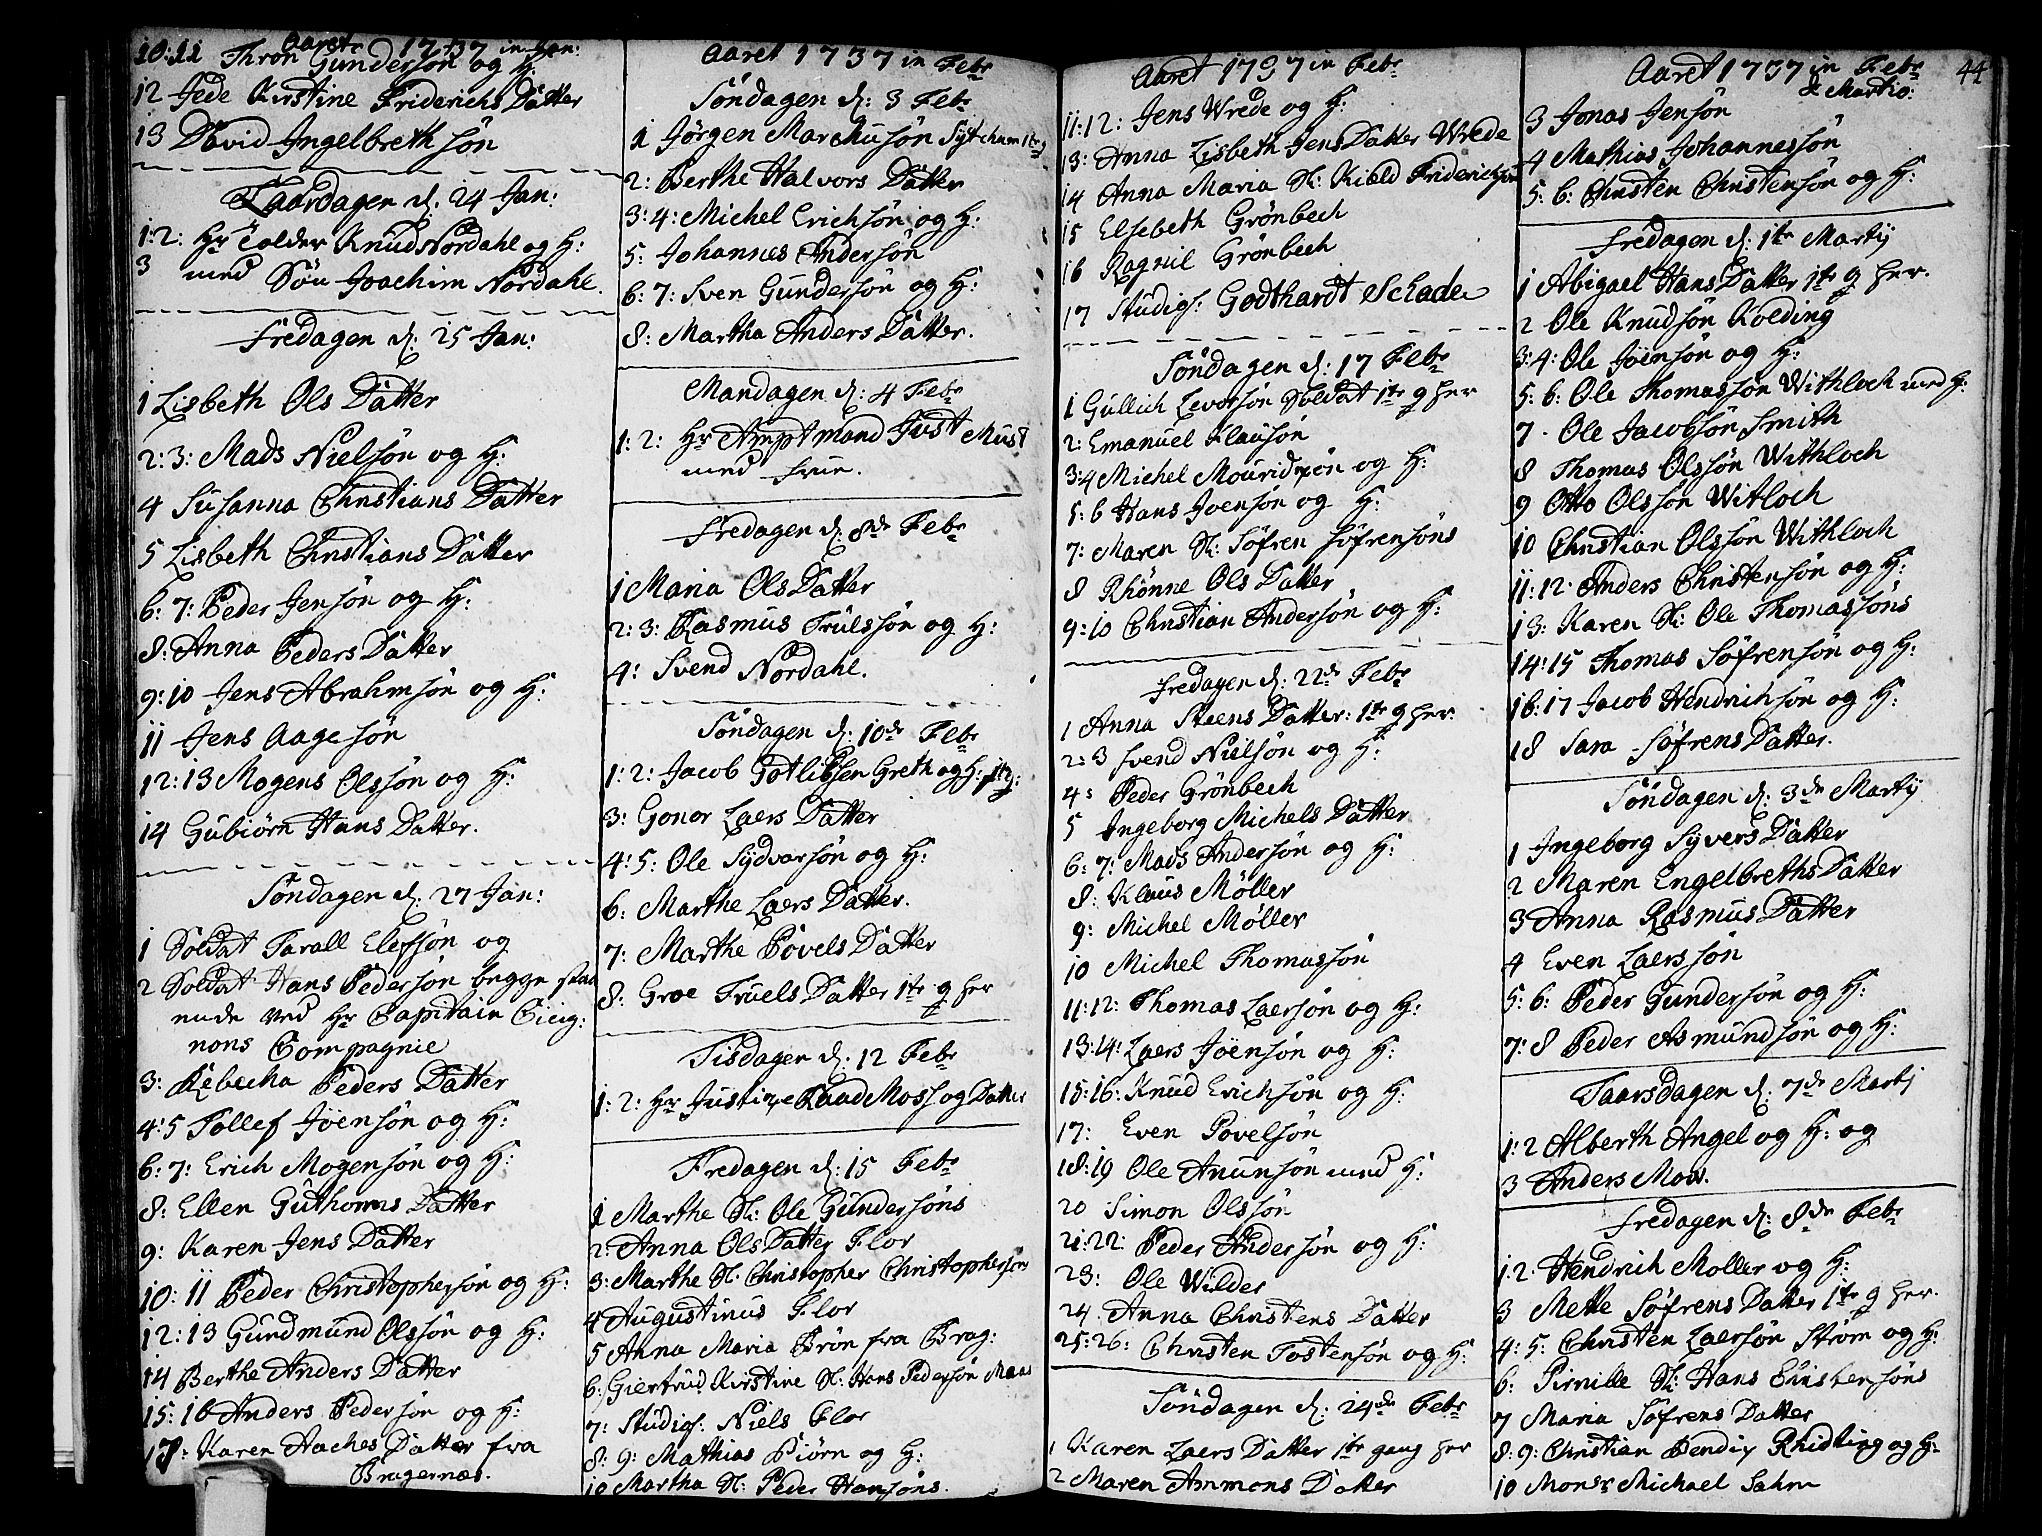 Aaret 1737 in Jan:
10:11 Thron Gundersøn og H:
12 Jede Kirstine Friderichs Datter
13 David Ingelbrethsøn
Laardagen d: 24 Jan:
1:2: Hr Colder Knud Nordahl og H:
3 med Søn Joachim Nordahl.
Fredagen d: 25 Jan:
1 Lisbeth Ols Datter
2:3: Mads Nielsøn og H:
4 Susanna Christians Datter
5 Lisbeth Christians Datter
6:7: Peder Jensøn og H:
8: Anna Peders Datter
9:10 Jens Abrahmsøn og H:
11 Jens Aagesøn
12:13 Mogens Olssøn og H:
14 Gubiørn Hans Datter.
Søndagen d: 27 Jan:
1 Soldat Tarall Elefsøn og
2 Soldat Hans Pedersøn begge staa
ende ved Hr Capitain Cicig:
nons Compagnie
3: Rebecha Peders Datter
4:5 Tollef Joensøn og H:
6:7: Erich Mogensøn og H:
8: Ellen Guthorms Datter
9: Karen Jens Datter
10:11 Peder Christophersøn og H:
12:13 Gundmund Olssøn og H:
14 Berthe Anders Datter
15:16 Anders Pedersøn og H:
17: Karen Aaches Datter fra
Bragernæs.
Aaret 1737 in Febr
Søndagen d: 3 Febr
1 Jørgen Marchusøn
2: Berthe Halvors Datter
3:4: Michel Erichsøn og H:
5: Johannes Andersøn
6:7: Sven Gundersøn og H:
8: Martha Anders Datter.
Mandagen d: 4 Febr
1:2: Hr Amptmand Just Must
med frue.
Fredagen d: 8de Febr
1 Maria Ols Datter
2:3: Rasmus Trulssøn og H:
4: Svend Nordahl.
Søndagen d: 10de Febr
1:2: Jacob Gotlibsen Greth og H:
3: Gonor Laers Datter
4:5: Ole Sydvarsøn og H:
6: Marthe Laers Datter.
7: Marthe Povels Datter
8: Groe Truels Datter 1te g her
Tisdagen d: 12 Febr
1:2: Hr Justice Raad Moss og Datter
Fredagen d: 15 Febr
1 Marthe Sl: Ole Gundersøns
2: Anna Ols Datter Flor
3: Marthe Sl: Christopher Christophersøn
4 Augustinus Flor
5 Anna Maria Brøn fra Brag:
6: Giertrud Kirstine Sl: Hans Pedersøn Maas
7: Studios. Niels Flor
8:9: Mathias Biørn og H:
10 Martha Sl: Peder Hansøns.
Aaret 1737 in Febr
11:12: Jens Wrede og H:
13: Anna Lisbeth Jens Datter Wrede
14 Anna Maria Sl: Kield Friderichsøn
15 Elsebeth Grønbech
16 Ragnil Grønbech
17 Studios. Godthardt Schade
Søndagen d: 17 Febr
1 Gullich Levorsøn Soldat 1te g her
2: Emanuel Klausøn
3:4 Michel Mouridsøn og H:
5:6 Hans Joensøn og H:
7: Maren Sl: Søfren Søfrensøns
8 Rhønne Ols Datter
9:10 Christian Andersøn og H:
Fredagen d: 22de Febr
1 Anna Steens Datter: 1te g her.
2:3 Svend Nielsøn og H:
4: Peder Grønbech
5 Ingeborg Michels Datter
6:7: Mads Andersøn og H:
8: Klaus Møller
9: Michel Møller
10 Michel Thomassøn
11:12: Thomas Laersøn og H:
13:14: Laers Joensøn og H:
15:16: Knud Erichsøn og H:
17: Even Povelsøn
18:19 Ole Anunsøn med H:
20 Simon Olssøn
21:22: Peder Andersøn og H:
23: Ole Wilder
24 Anna Christens Datter
25:26: Christen Tostensøn og H:
Søndagen d: 24de Febr
1 Karen Laers Datter 1te gang her
2 Maren Ammons Datter
Aaret 1737 in Febr 44
& Martio:
3 Jonas Jensøn
4 Mathias Johannessøn
5:6: Christen Christensøn og H:
Fredagen d: 1te Martij
1 Abigael Hans Datter 1te g her.
2 Ole Knudsøn Kolding
3:4: Ole Joensøn og H:
5:6: Ole Thomassøn Withloch med H:
7. Ole Jacobsøn Smith
8 Thomas Olssøn Withloch
9 Otto Olssøn Witloch
10 Christian Olssøn Withloch
11:12: Anders Christensøn og H:
13: Karen Sl: Ole Thomassøns
14:15 Thomas Søfrensøn og H:
16:17 Jacob Hendrichsøn og H:
18 Sara Søfrens Datter.
Søndagen d: 3de Martij
1 Ingeborg Syvers Datter
2 Maren Engelbreths Datter
3 Anna Rasmus Datter
4 Even Laerssøn
5:6: Peder Gundersøn og H:
7:8 Peder Asmundsøn og H:
Taarsdagen d: 7de Martij
1:2 Alberth Angel og H: og
3 Anders Mow.
Fredagen d: 8de Febr
1:2 Hendrich Moller og H:
3 Mette Søfrens Datter 1te g her.
4:5: Christen Laersøn Strøm og H:
6: Pirnille Sl: Hans Christensøns
7 Maria Søfrens Datter
8:9: Christian Bendix Rhidting og H:
10 Monsr Michael Sahm